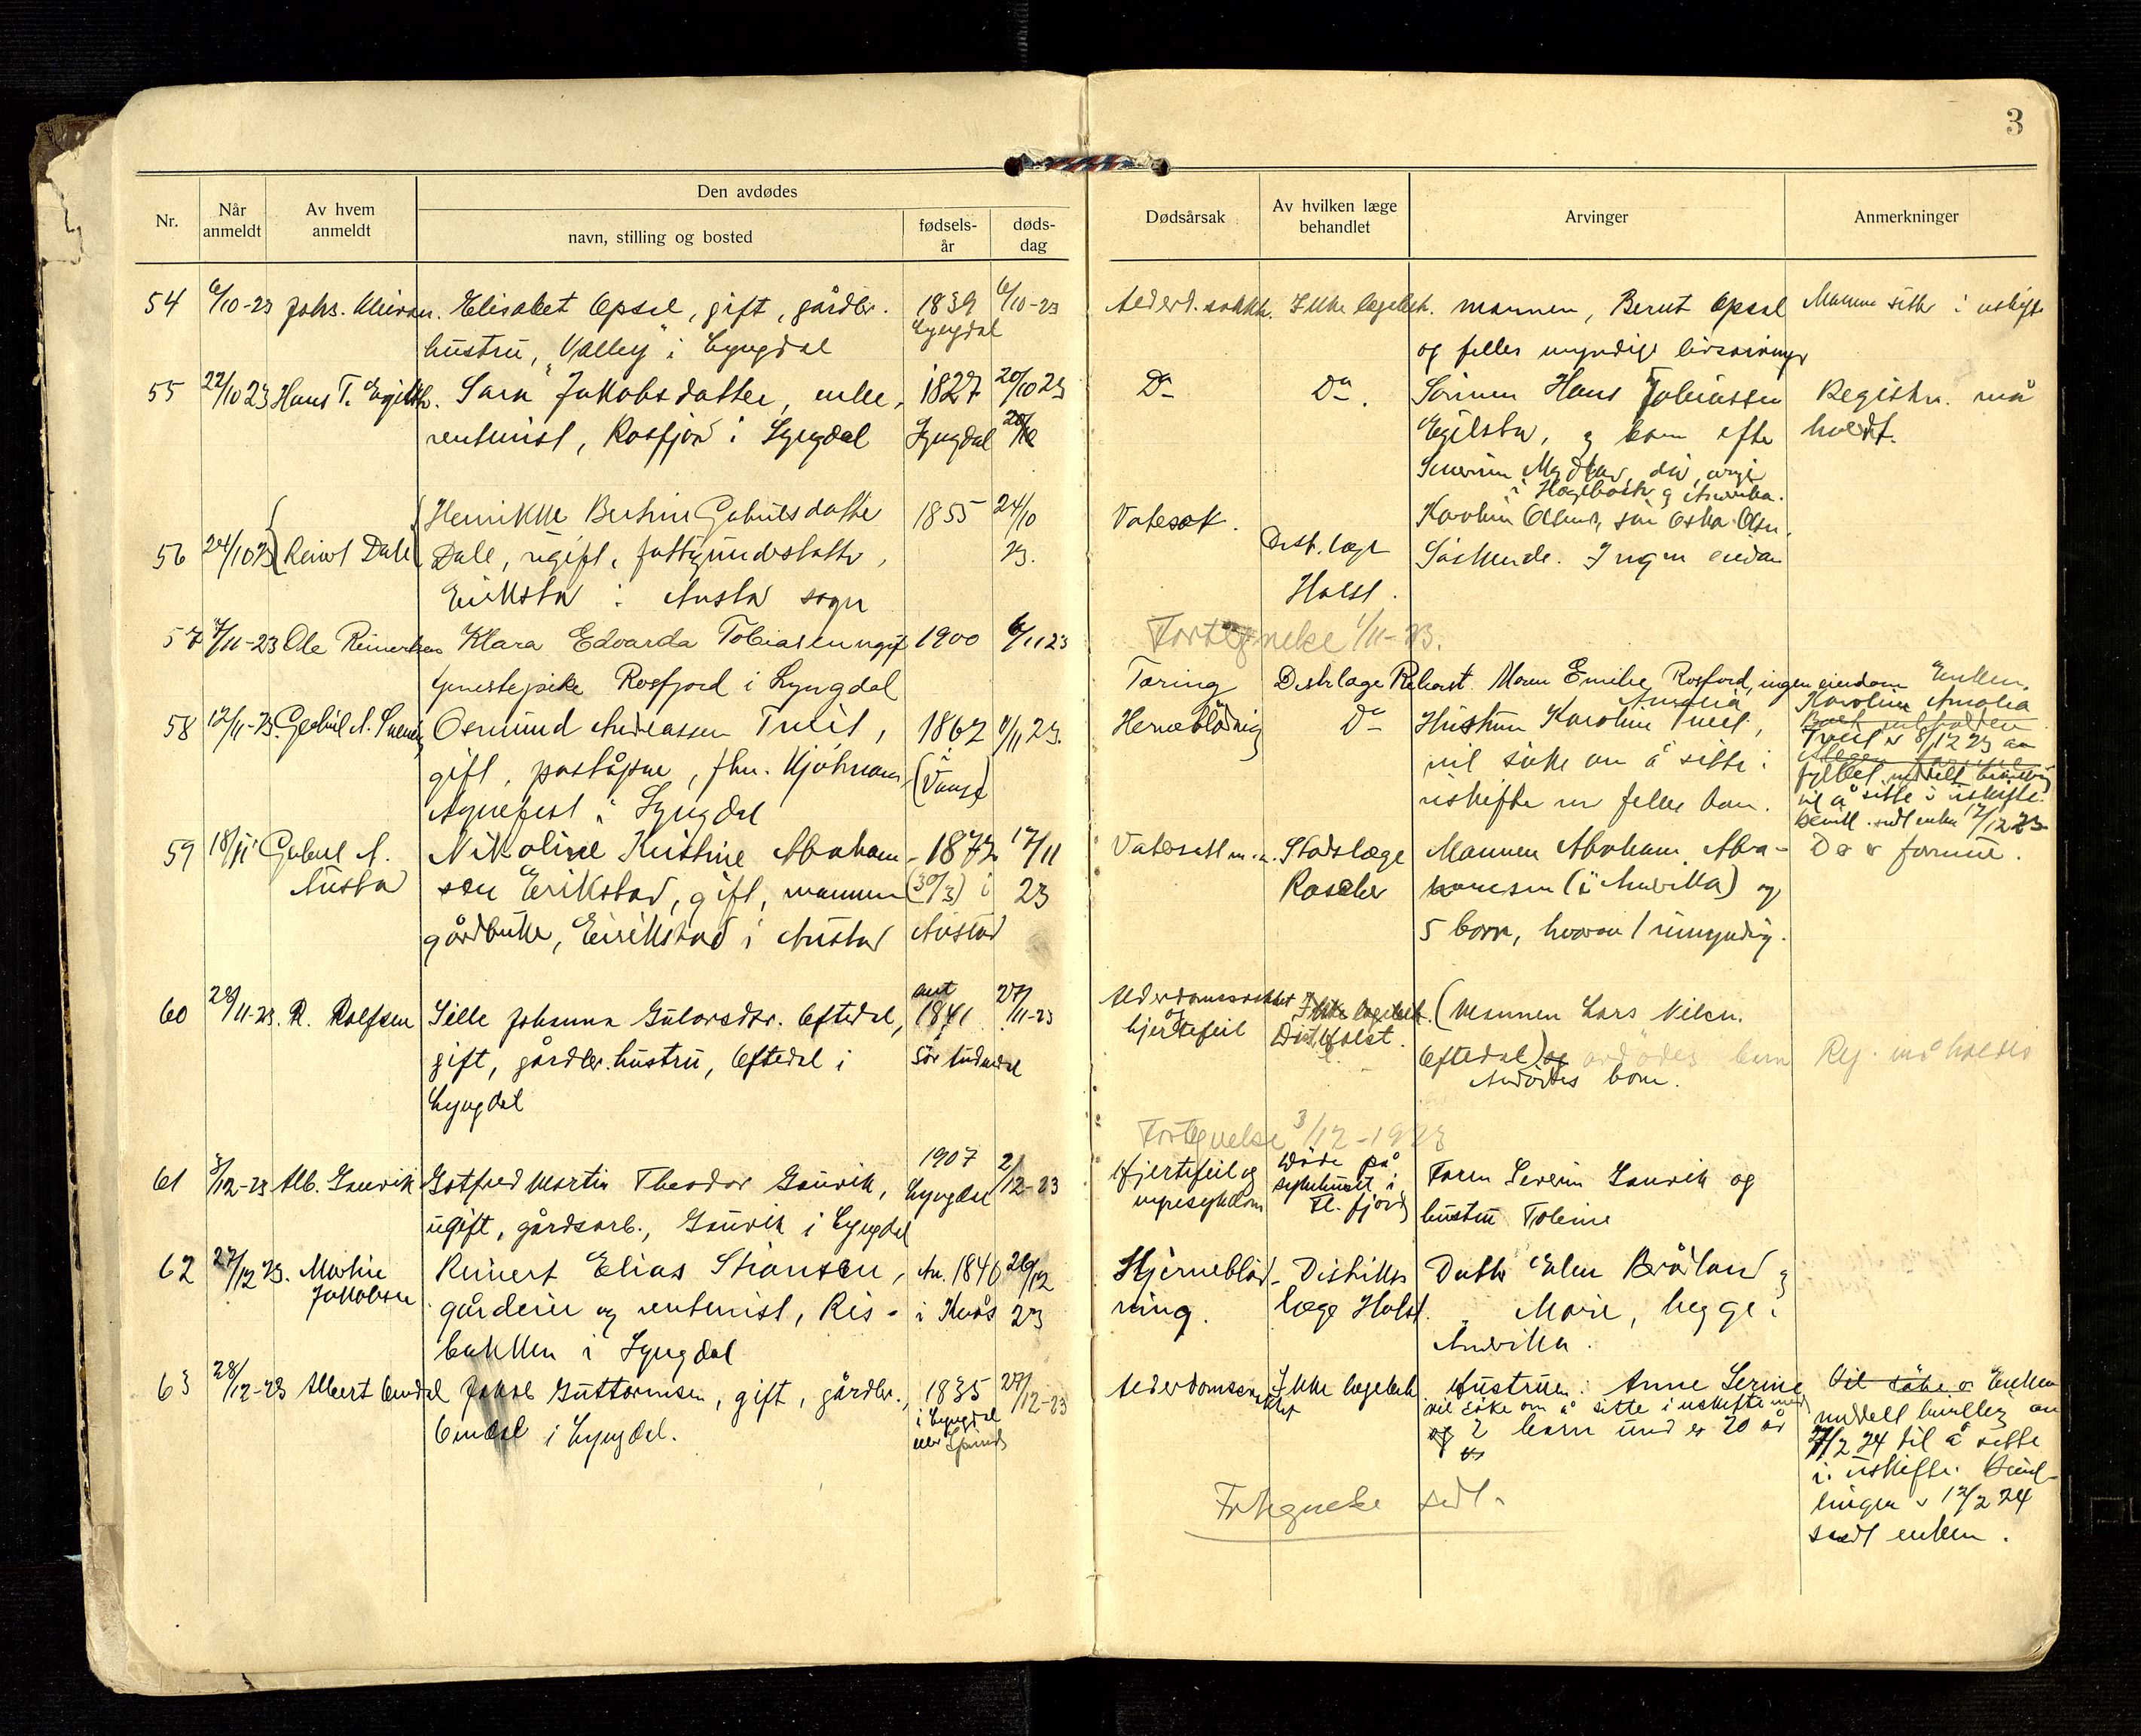 3
Nr.
Når anmeldt
Av hvem anmeldt
Den avdødes
navn, stilling og bosted
fødsels-år
døds-dag
Dødsårsak
Av hvilken læge behandlet
Arvinger
Anmerkninger
54 6/10-23 Elisabet Opsal, gift, gårdbr. 1839 6/10-23 mannen, Bernt Opsal Manne sitter i uskifte
hustru, "Valley" i Lyngdal Lyngdal og felles myndige livsarvinger
55 22/10 23 Hans T. Egilsta. Sara Jakobsdatter, enke, 1827 20/10 23 Do Do. Sønnen Hans Tobiassen Registr. må
rentenist, Rosfjord i Lyngdal Lyngdal Egilsta, og barn efter holdt.
i Hægebost og Amerika.
Henrikke Bertine Gabrielsdatter 1855 24/10 Vatersot. Karoline Olsens, søn Oskar Olsen.
56 24/10 23 Reinert Dale Dale, ugift, fattigunderstøtt, 23. Distr. læge Søskende. Ingen eiendom
Eriksta i Austa sogn Holst.
57 7/11-23 Ole Reinertsen Klara Edvarda Tobiasen ugif 1900 6/11 23 Fortegnelse 1/11-23.
tjenestepike Rosfjord i Lyngdal Tæring Distrlæge Maren Emilie Rosfjord, ingen eiendom Enken,
Amalia Karoline Amalia
58 12/11-23. Gabriel A. Osmund Andreassen Tveit, 1862 11/11 23. Hjerneblødnig Do Hustrun Karoline Tveit,
Tveit er 8/12 23 av
gift, poståpne, fhv. (Vanse) vil søke om å sitte i
fylket meddelt bevilling
Agnefest i Lyngdal uskifte m felles barn. til å sitte i uskifte.
Bevill. sedt enken 12/12 23
59 18/11 Gabriel A. Nikoline Kristine Abraham- 1872 17/11 Vatersott m.m. Stadslæge Mannen Abraham Abra- De er formue.
Austad sen Erikstad, gift, mannen (30/3) i 23 Roscher hamsen (i Amerikka) og
gårdbruker, Eirikstad i Austad Austad 5 barn, hvorav 1 umyndig.
60 28/11-23. R. Rolfsen Sille Johanna Gulovsdtr. Oftedal, ant 1841 27/11-23 Alderdomssvakhet og hjertefeil Ikke lægebeh. Distr. Holst. (Mannen Lars Nilsen.
gift, gårdbr. hustru, Oftedal i Sør Audnedal Oftedal) og avdødes barn Reg. må holdes
Lyngdal Avdødes barn.
Fortegnelse 3/12-1923
61 3/12-23 Alb. Gauvik Gotfred Martin Theodor Gauvik, 1907 Lyngdal 2/12-23 Hjertefeil og nyresykdom Døde på sykehuset i Fl. fjord Faren Severin Gauvik og
ugift, gårdsarb., Gauvik i Lyngdal hustru Tobine
62 27/12 23. Martin Jakobsen Reinert Elias Stiansen, An. 1840 26/12 Hjerneblød- Distrikts Datter Elen og
gårdeier og rentenist, Ris- i Kvås 23 ning. læge Holst. Marie, begge i
bakken i Lyngdal Amerikka.
63 28/12-23 Albert Omdal Jakob Guttormsen, gift, gårdbr., 1835 27/12-23 Alderdomssvakhet Ikke lægebeh. Hustruen: Anne Serine Vil søke o Enken
Omdal i Lyngdal. i Lyngdal eller Spind vil søke om å sitte i uskifte med meddelt bevilling av
og 2 barn und er 20 år 7/2 24 til å sitte
i uskifte. Bevil-
Fortegnelse sedt. lingen 12/2 24
sendt enken.